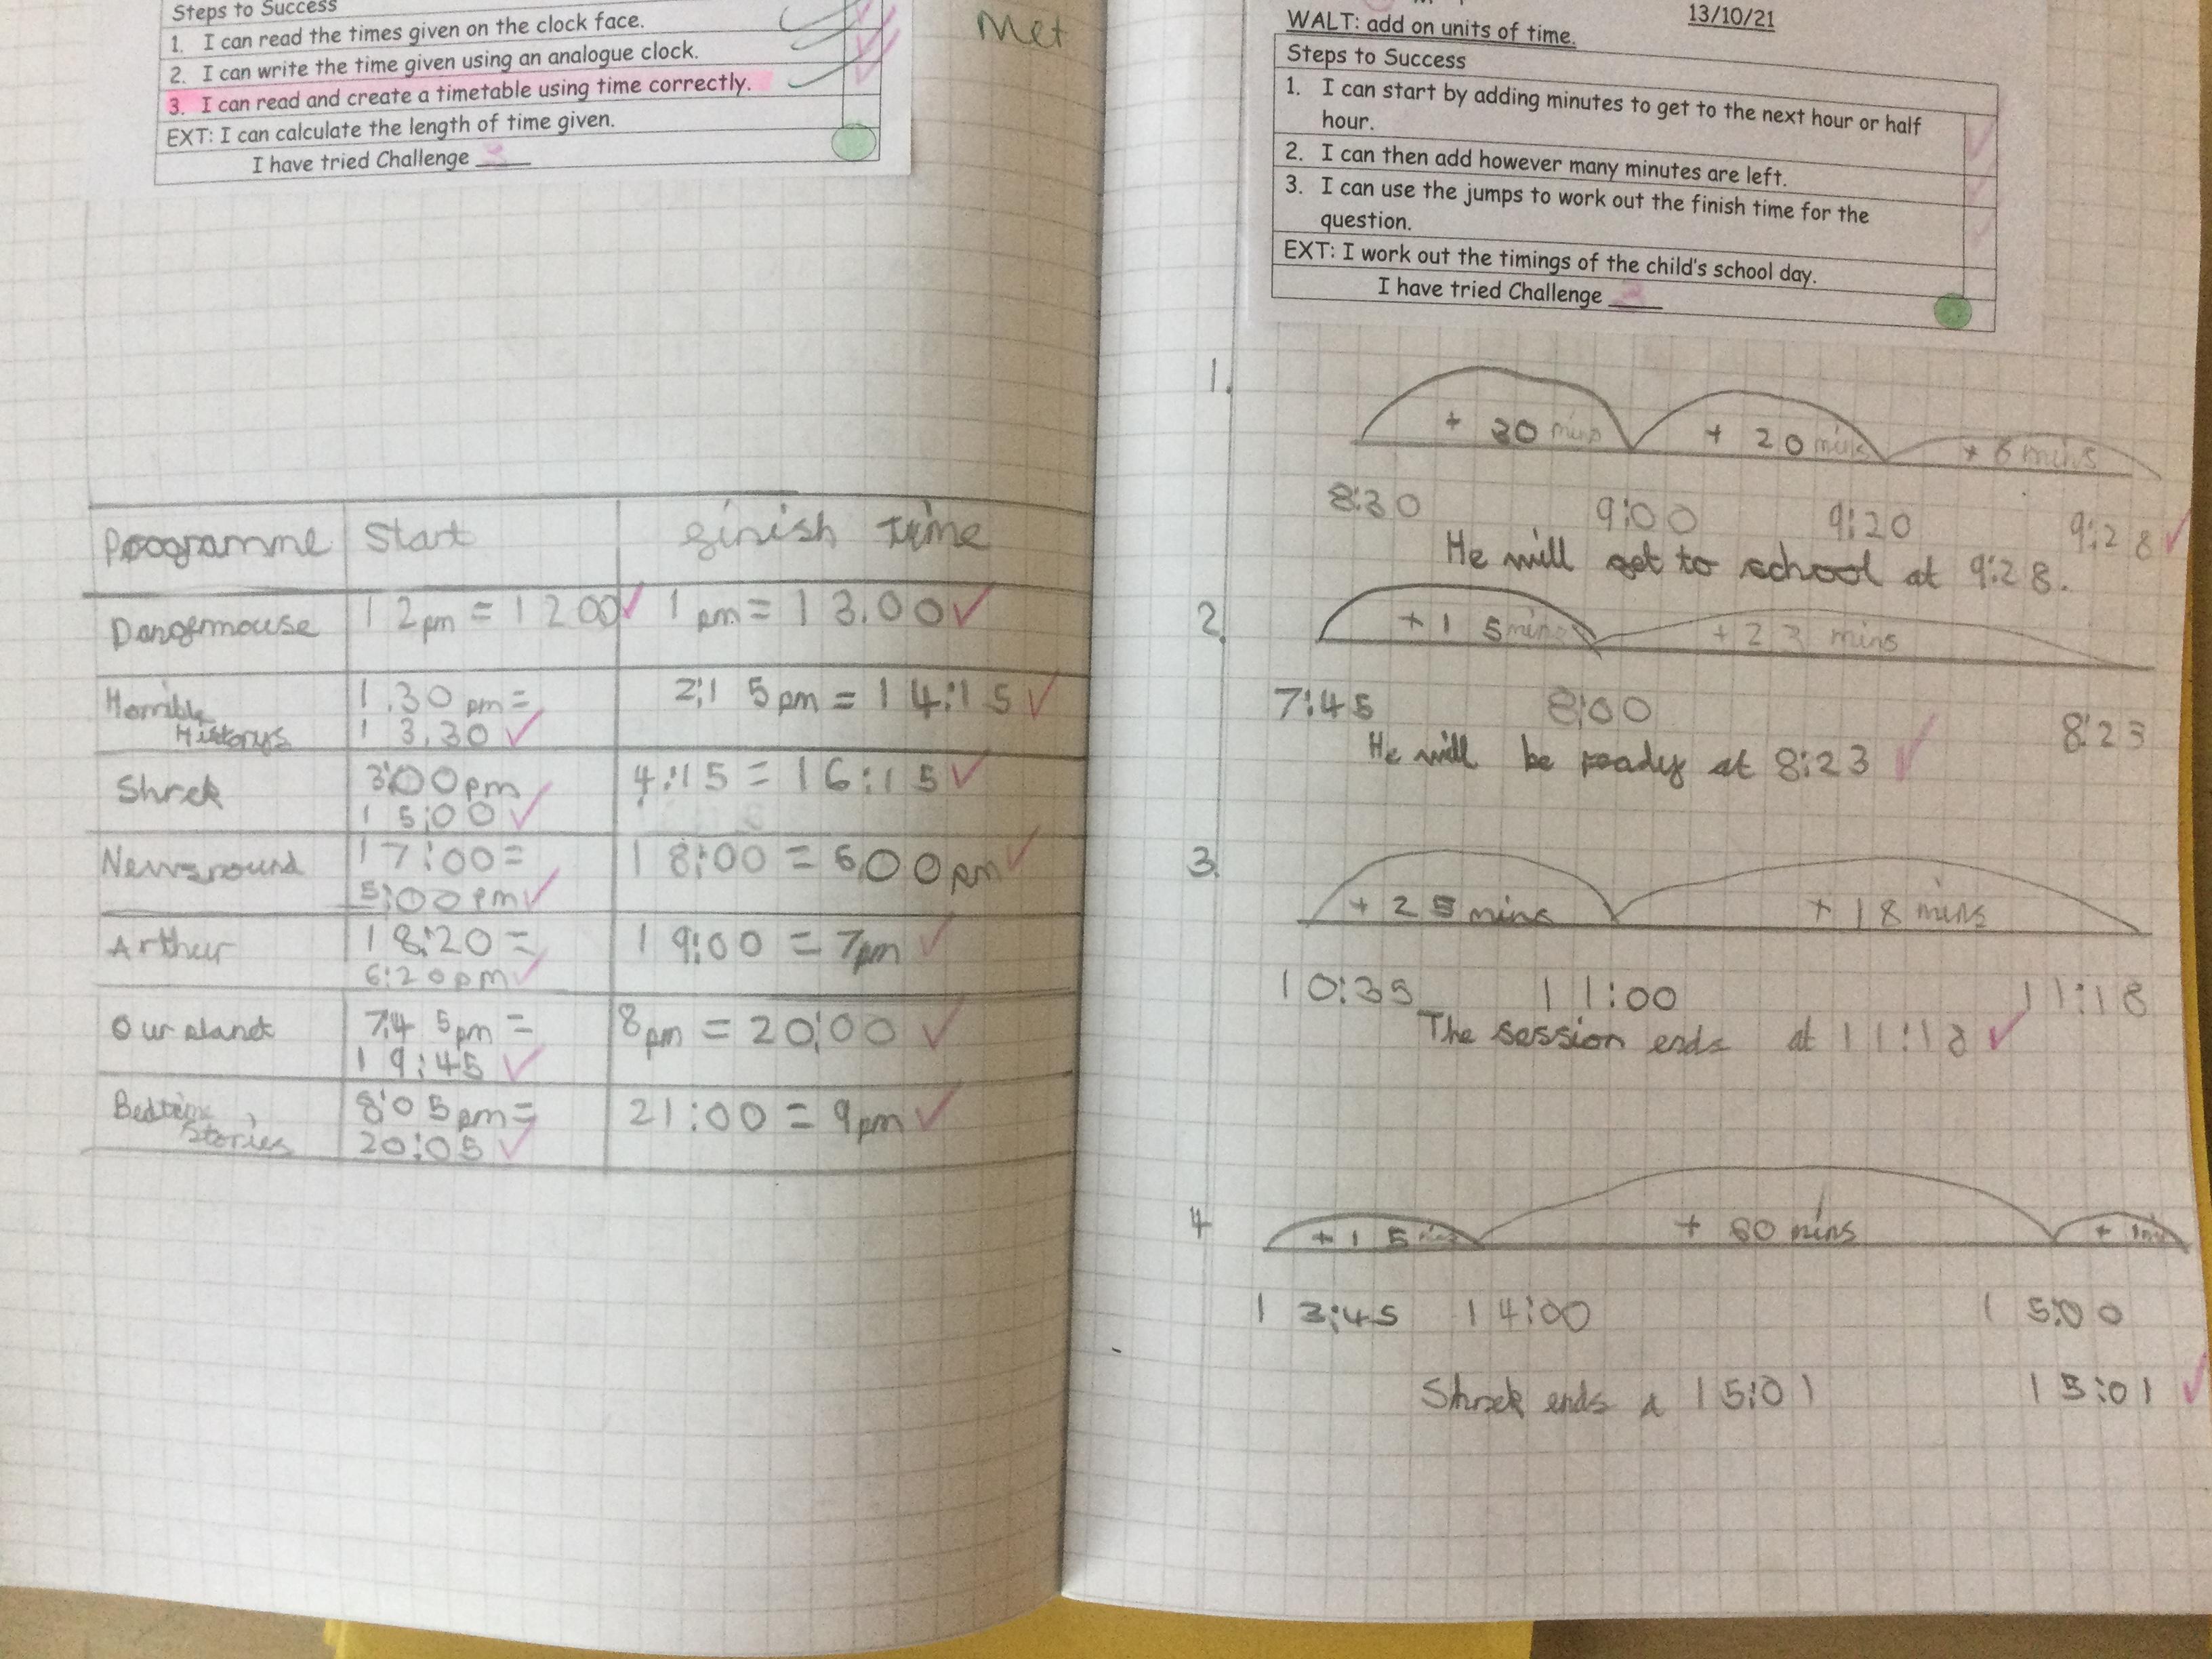 Steps to Success
1. I can read the times given on the clock face.
2. I can write the time given using an analogue clock.
3. I can read and create a timetable using time correctly.
EXT: I can calculate the length of time given.
I have tried Challenge 3
Met
Programme Start finish time
Dangermouse 12pm = 1200 1pm = 13.00
Horrible Historys 1.30 pm = 13.30 2:15pm = 14:15
Shrek 3:00pm 15:00 4:15 = 16:15
Newsround 17:00 = 5:00pm 18:00 = 6:00pm
Arthur 18:20 = 6:20pm 19:00 = 7pm
Our planet 7:45pm = 19:45 8pm = 20:00
Bedtime Stories 8:05pm = 20:05 21:00 = 9pm
13/10/21
WALT: add on units of time.
Steps to Success
1. I can start by adding minutes to get to the next hour or half
hour.
2. I can then add however many minutes are left.
3. I can use the jumps to work out the finish time for the
question.
EXT: I work out the timings of the child's school day.
I have tried Challenge 3
1.
+ 30 mins + 20 mins + mins
8:30 9:00 9:20 9:28
He will get to school at 9:28.
2.
+ 15 mins + 23 mins
7:45 8:00 8:23
He will be ready at 8:23
3.
+ 25 mins + 18 mins
10:35 11:00 11:18
The session ends at 11:18
4
+ 15 mins + 60 mins + 1min
13:45 14:00 15:00
Shrek ends a 15:01 15:01